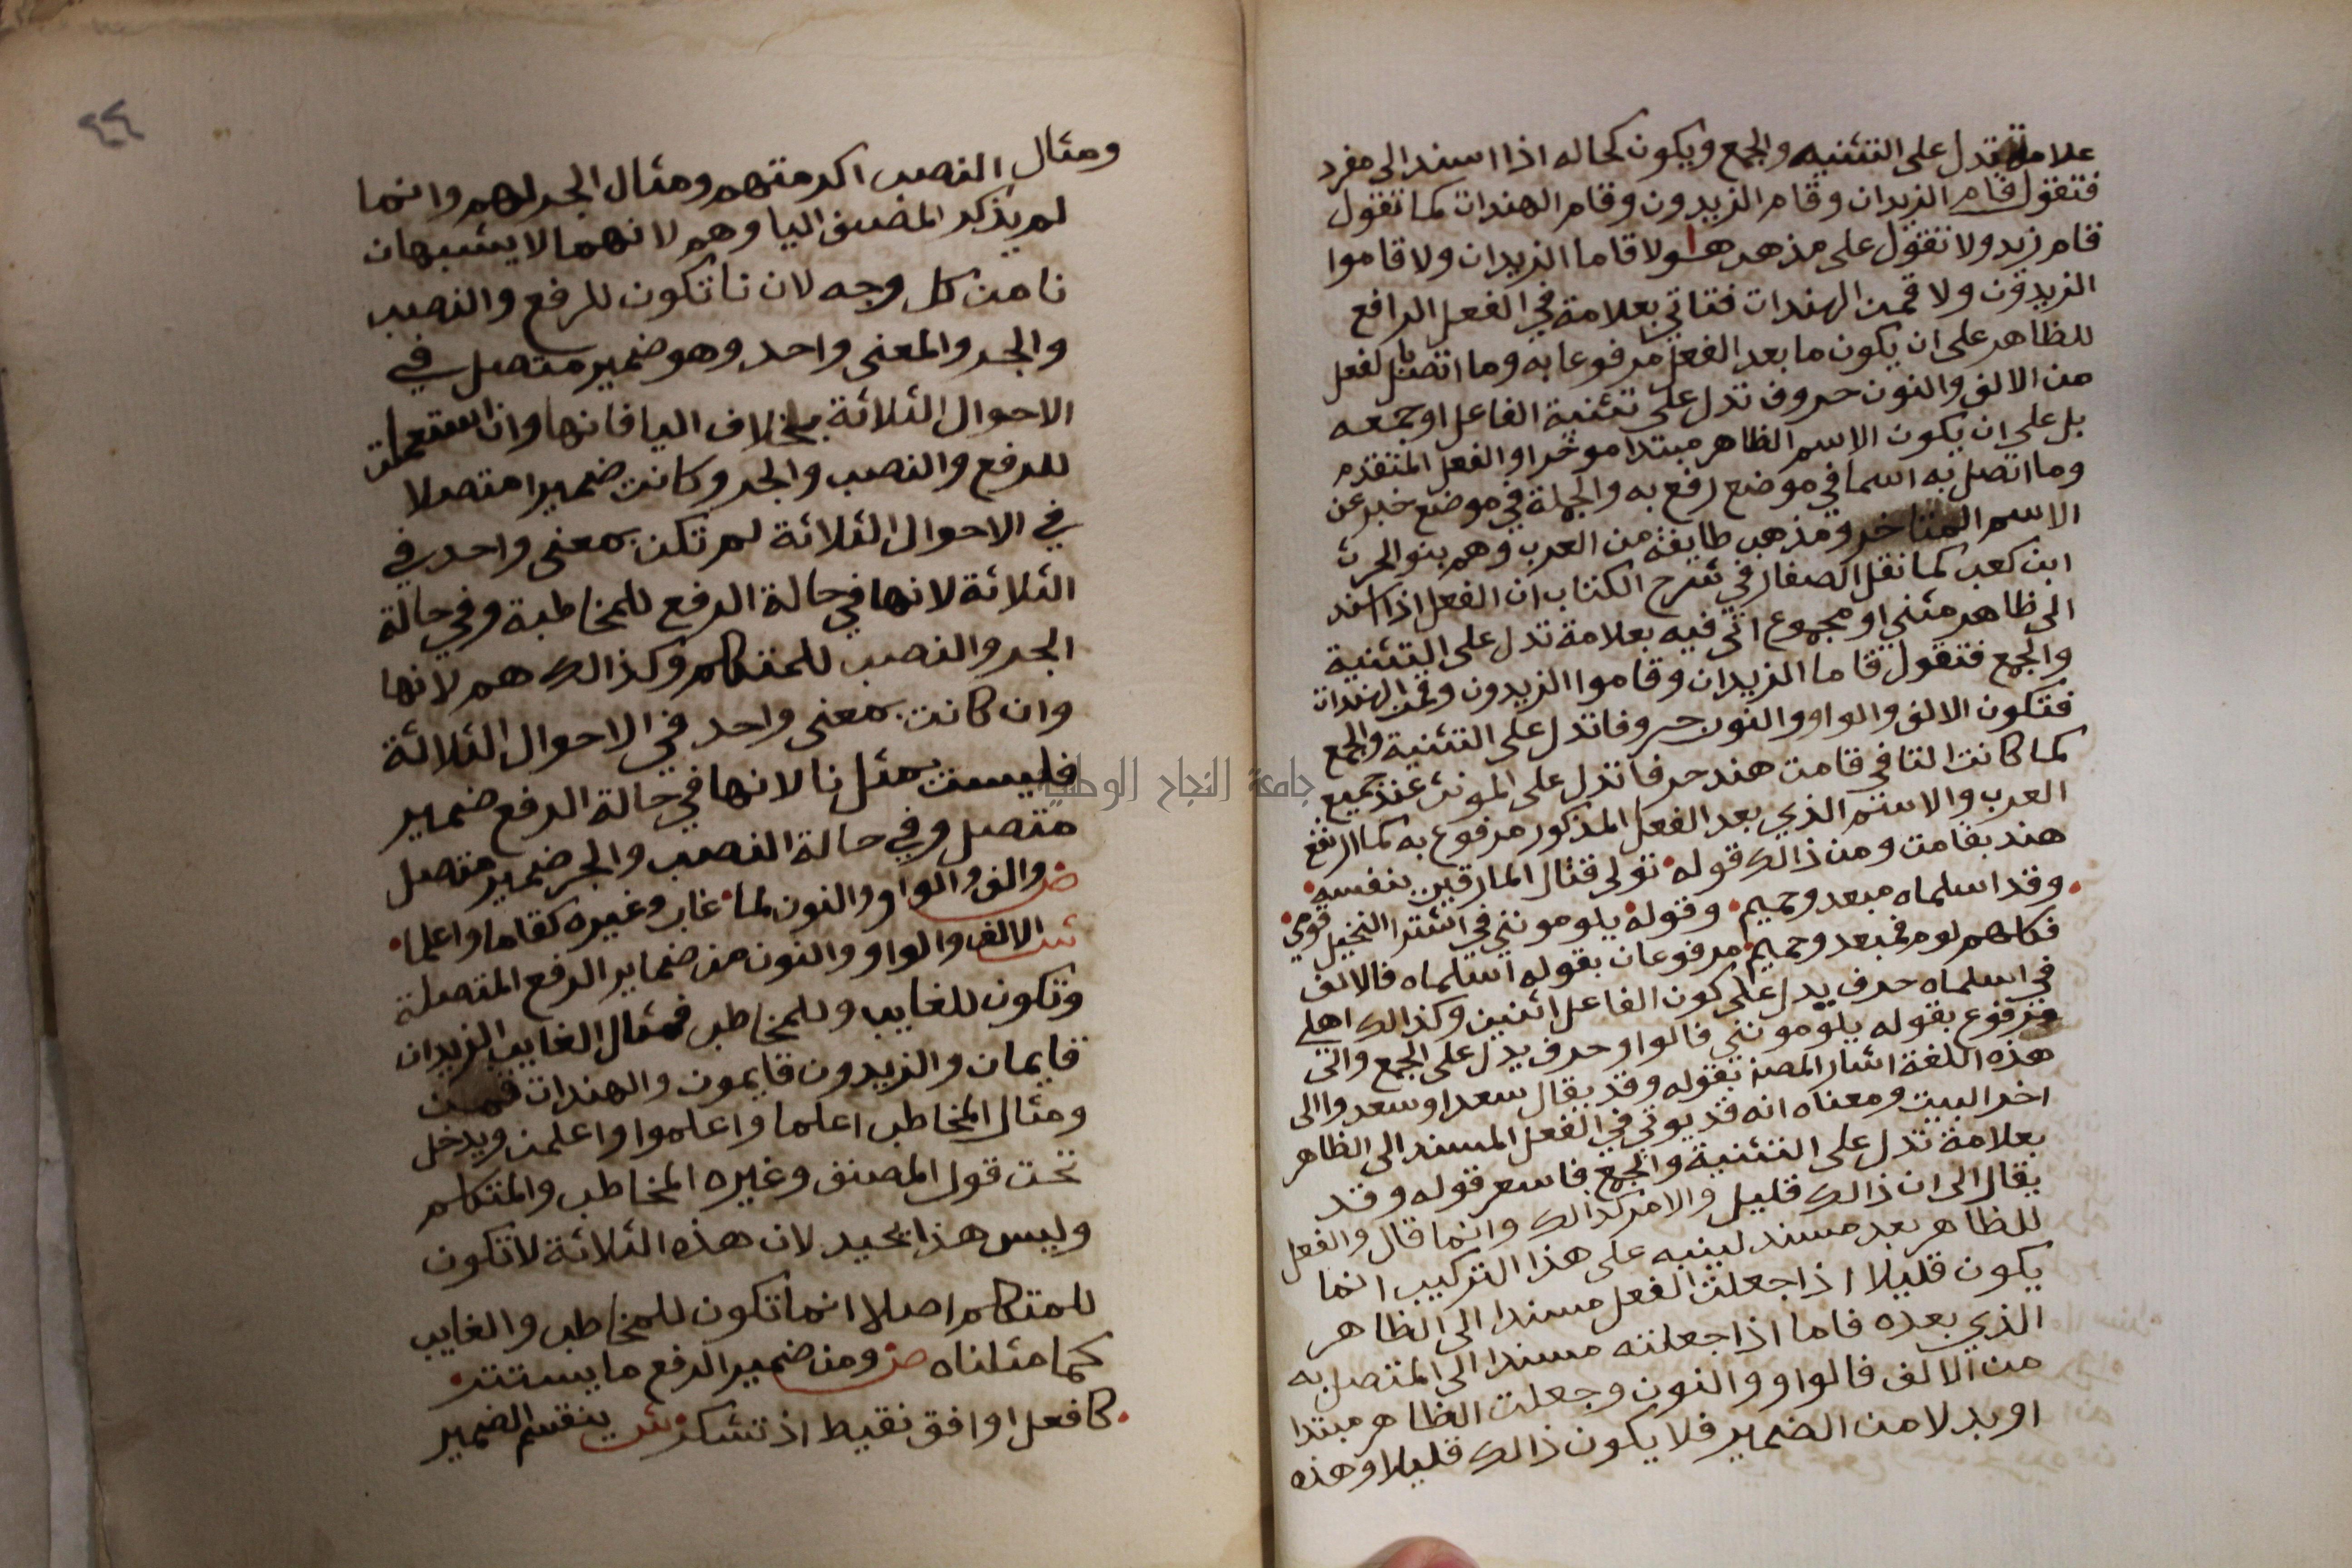 علامة تدل على التثنيه والجمع ويكون كحاله اذا اسند الى مفرد
فتقول قام الزيدان وقام الزيدون وقام الهندات كما تقول
قام زيد ولا تقول على مذهب هاولا قاما الزيدان ولا قاموا
الزيدون ولا قمن الهندات فتاتي بعلامة في الفعل الرافع
للظاهر على ان يكون ما بعد الفعل مرفوعا به وما اتصل بالفعل
من الالف والنون حروف تدل على تثنية الفاعل او جمعه
بل على ان يكون الاسم الظاهر مبتدا موخرا والفعل المتقدم
وما اتصل به اسما في موضع رفع به والجملة في موضع خبر عن
الاسم المتاخر ومذهب طايفة من العرب وهم بنو الحرث
ابن كعب كما نقل الصفار في شرح الكتاب ان الفعل اذا اسند
الى ظاهر مثنى او مجموع اتى فيه بعلامة تدل على التثنية
والجمع فتقول قاما الزيدان وقاموا الزيدون وقمن الهندات
فتكون الالف والواو والنون حروفا تدل على التثنية والجمع
كما كانت التا في قامت هند حرفا تدل على المونث عند جميع
العرب والاسم الذي بعد الفعل المذكور مرفوع به كما ارتفع
هند بقامت ومن ذالك قوله تولى قتال المارقين بنفسه
وقد اسلماه مبعد وحميم وقوله يلومونني في اشترا النخيل قومي
فكلهم لوم فمبعد وحميم مرفوعان بقوله اسلماه فالالف
في اسلماه حرف يدل على كون الفاعل اثنين وكذالك اهلي
مرفوع بقوله يلومونني فالواو حرف يدل على الجمع والى
هذه اللغة اشار المصنف بقوله وقد يقال سعدا وسعدوا الى
اخر البيت ومعناه انه قد يوتي في الفعل المسند الى الظاهر
بعلامة تدل على التثنية والجمع فاسعر قوله وقد
يقال الى ان ذالك قليل والامر كذالك وانما قال والفعل
للظاهر بعد مسند لينبه على هذا التركيب انما
يكون قليلا اذا جعلت الفعل مسندا الى الظاهر
الذي بعده فاما اذا جعلته مسندا الى المتصل به
من الالف فالواو والنون وجعلت الظاهر مبتدا
او بدلا من الضمير فلا يكون ذالك قليلا وهذه
٩٩
ومثال النصب اكرمتهم ومثال الجر لهم وانما
لم يذكر المصنف اليا وهم لانهما لا يشبهان
نا من كل وجه لان نا تكون للرفع والنصب
والجر والمعنى واحد وهو ضمير متصل في
الاحوال الثلاثة بخلاف اليا فانها وان استعملت
للرفع والنصب والجر وكانت ضميرا متصلا
في الاحوال الثلاثة لم تكن بمعنى واحد في
الثلاثة لانها في حالة الرفع للمخاطبة وفي حالة
الجر والنصب للمتكلم وكذالك هم لانها
وان كانت بمعنى واحد في الاحوال الثلاثة
فليست بمثل نا لانها في حالة الرفع ضمير
متصل وفي حالة النصب والجر ضمير متصل
ص والف والواو والنون لما غاب وغيره كقاما واعلما
ش الالف والواو والنون من ضماير الرفع المتصلة
وتكون للغايب وللمخاطب فمثال الغايب الزيدان
قايمان والزيدون قايمون والهندات قمن
ومثال المخاطب اعلما واعلموا واعلمن ويدخل
تحت قول المصنف وغيره المخاطب والمتكلم
وليس هذا بجيد لان هذه الثلاثة لا تكون
للمتكلم اصلا انما تكون للمخاطب والغايب
كما مثلناه ص ومن ضمير الرفع ما يستتر
كافعل اوافق نغتبط اذ تشكر ش ينقسم الضمير
جامعة النجاح الوطنية